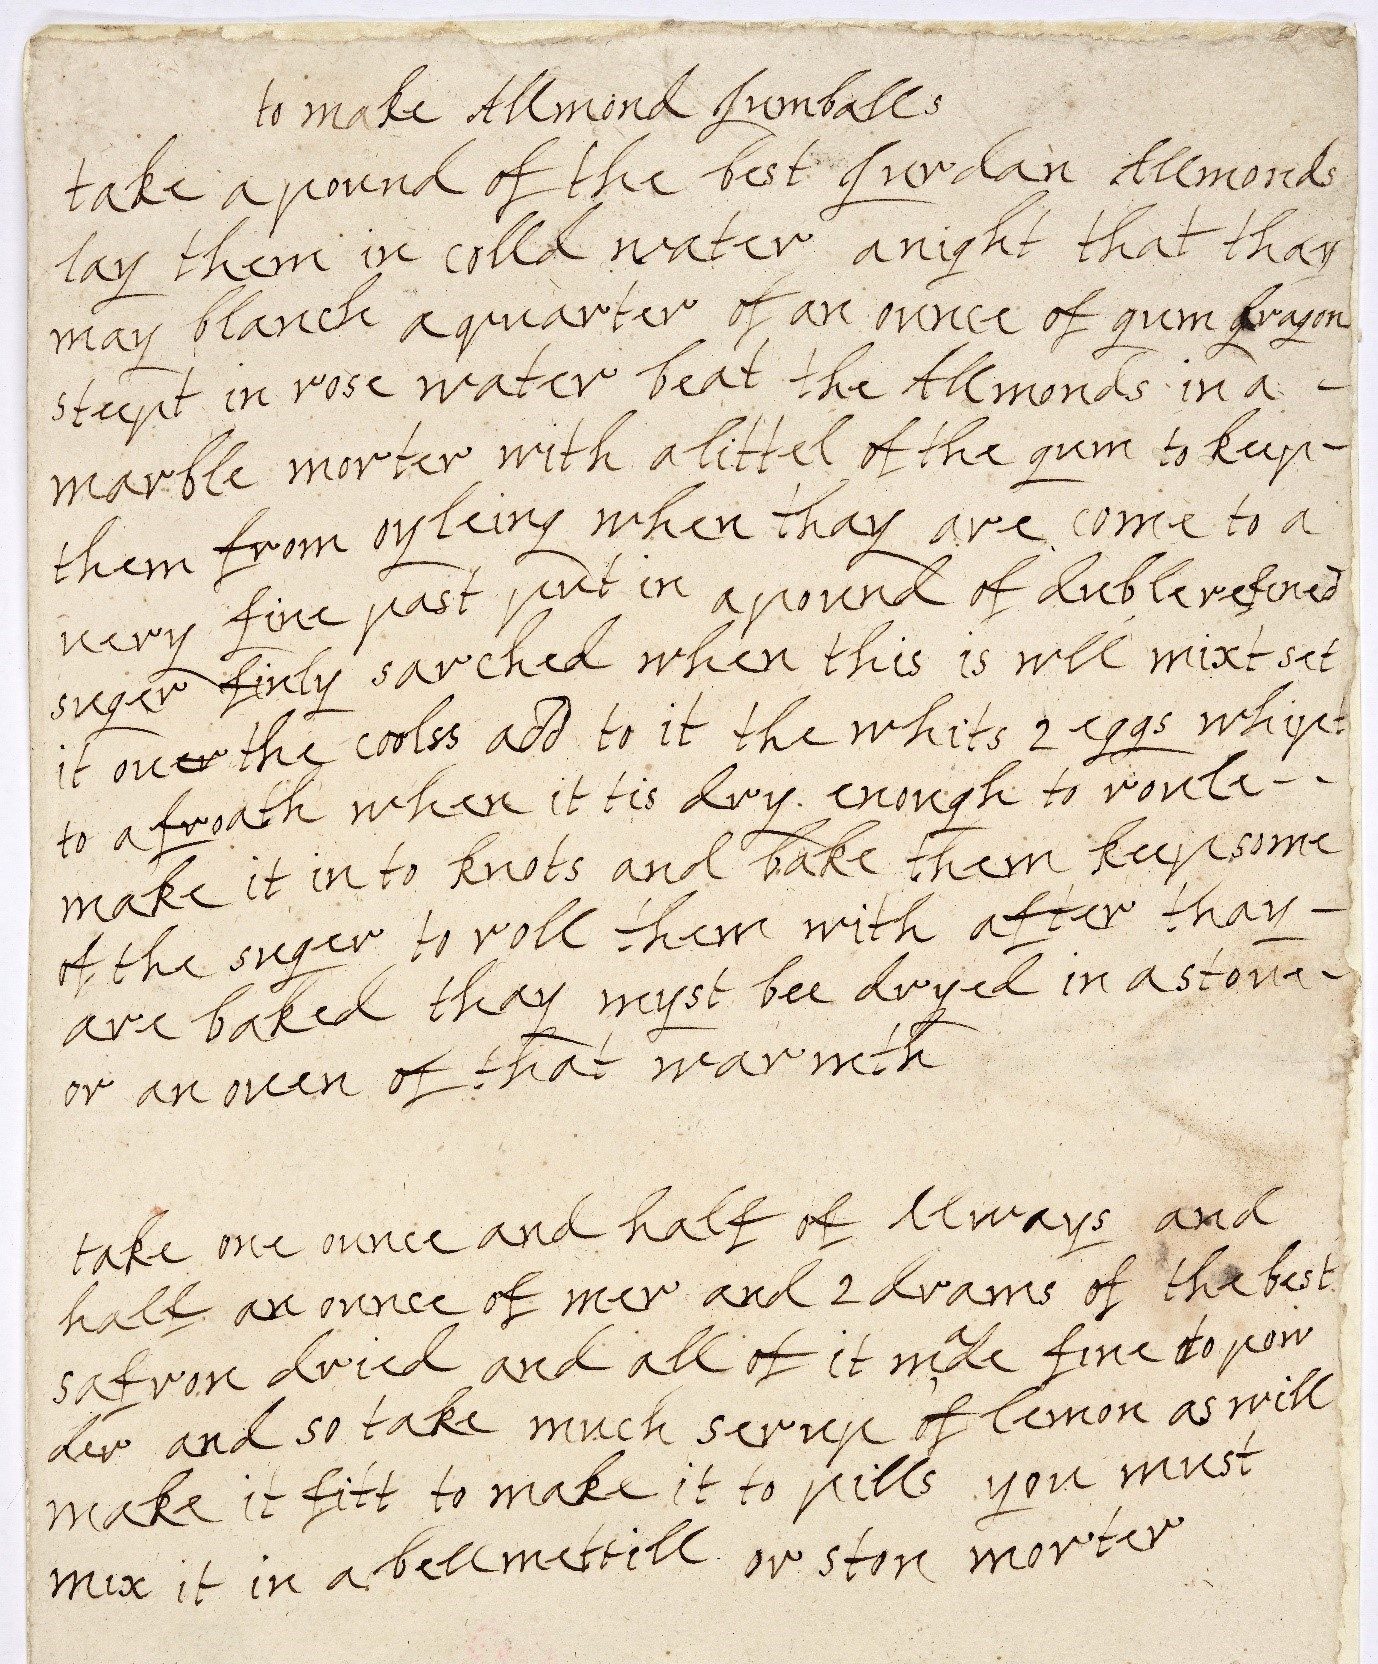 to make Allmond Jumballs
take a pound of the best Jurdan Allmonds
lay them in colld water a night that thay
may blanch a quarter of an ounce of gum dragon
steept in rose water beat the Allmonds in a -
marble morter with a littel of the gum to keep -
them from oyleing when thay are come to a
uery fine past put in a pound of duble refined
suger finly sarched when this is wll mixt set
it ouer the coolss add to it the whits 2 eggs whipt
to a froath when it tis dry enough to roule - -
make it in to knots and bake them keep some
of the suger to roll them with after thay -
are baked thay myst bee dryed in a stoue -
or an ouen of that warmth
take one ounce and half of Allways and
half an ounce of mer and 2 drams of the best
safron dried and all of it made fine to pow
der and so take much serrup of lemon as will
make it fitt to make it to pills you must
mix it in a bellmettill or ston morter